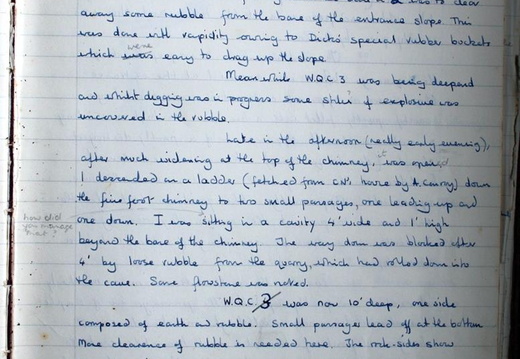 to clear
away some rubble from the base of the entrance slope. This
was done with rapidity owing to Dick's special rubber buckets
which was were easy to drag up the slope.
Meanwhile W.Q.C. 3 was being deepend
and whilst digging was in progress some sticks of explosive was
uncovered in the rubble.
Late in the afternoon (really early evening),
after much widening at the top of the chimney, was opened
I descended on a ladder (fetched from CN's house by A. Cawry) down
the five foot chimney to two small passages, one leading up and
one down. I was sitting in a cavity 4' wide and 1' high
how did
you manage
that?
beyond the base of the chimney. The way down was blocked after
4' by loose rubble from the quarry, which had rolled down into
the cave. Some flowstone was noted.
W.Q.C. 3 was now 10' deep, one side
composed of earth and rubble. Small passages lead off at the bottom
More clearence of rubble is needed here. The rock-sides show